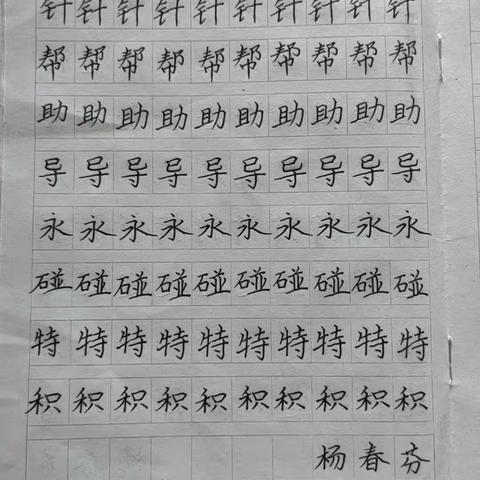 针针针针针针针针针针
帮帮帮帮帮帮帮帮帮帮
助助助助助助助助助助
导导导导导导导导导导
永永永永永永永永永永
碰碰碰碰碰碰碰碰碰碰
特特特特特特特特特特
积积积积积积积积积积
杨春芬